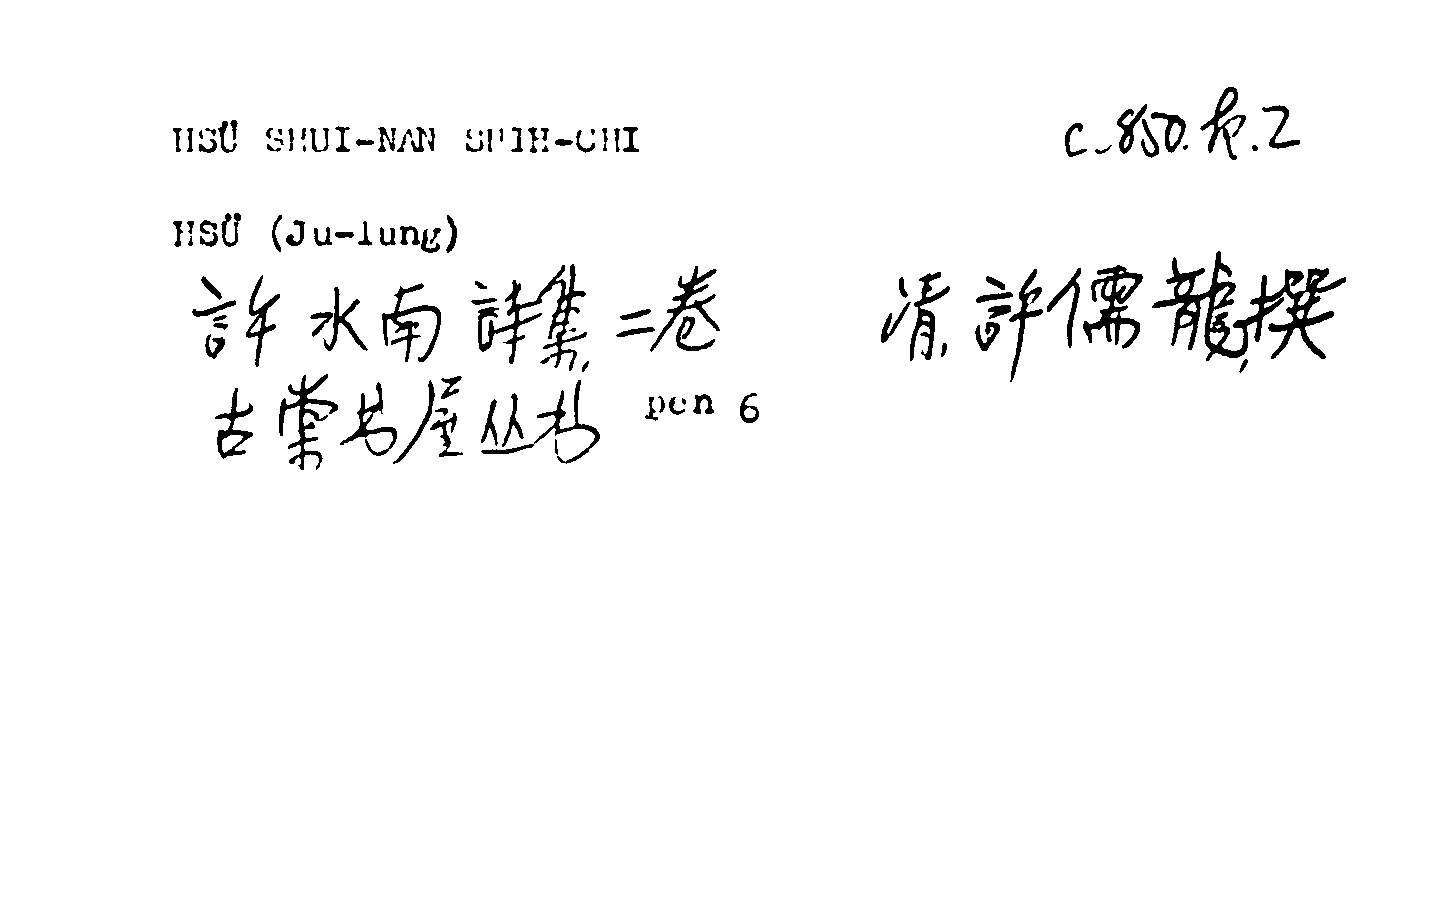 HSÜ SHUI-NAN SHIH-CHI c.850.k.2
HSÜ (Ju-lung)
許水南詩集二卷 清 許儒龍 撰
古棠书屋丛书 pen 6